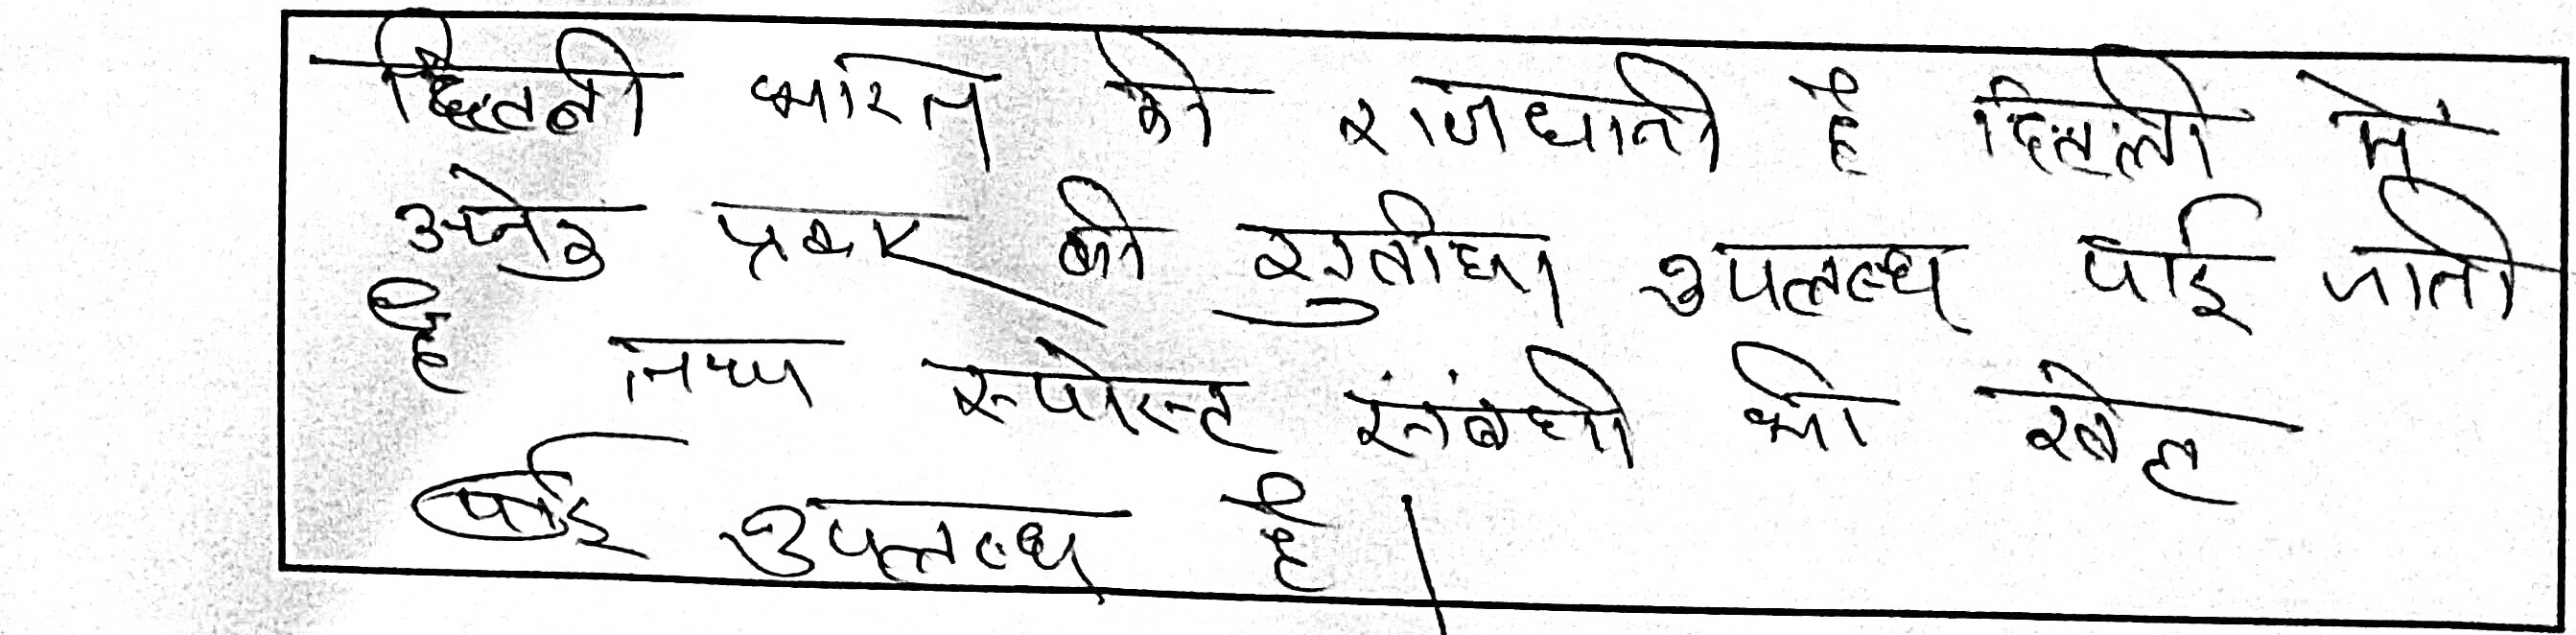 दिल्ली भारत की राजधानी है दिल्ली में
अनेक प्रकार की सुवीधा उपलब्ध पाई जाती
है तथा स्पोर्ट संबंधी भी खेल
पाई उपलब्ध है।